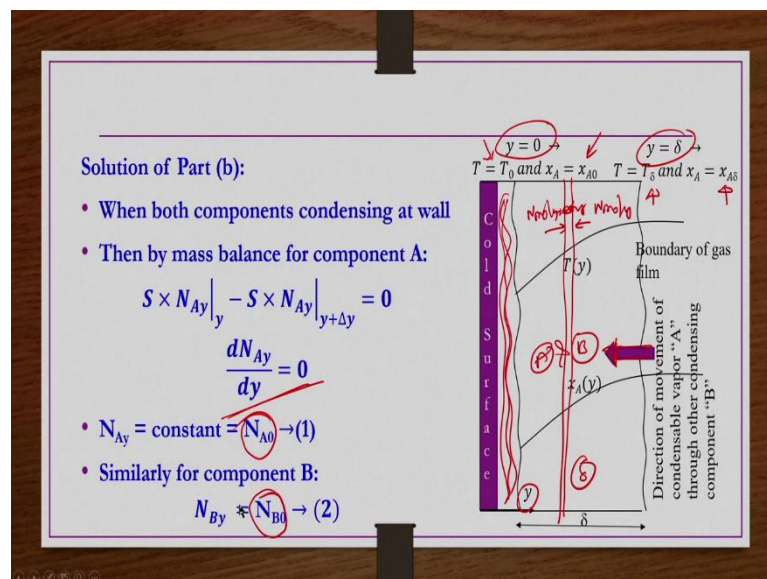 Solution of Part (b):
• When both components condensing at wall
• Then by mass balance for component A:
S × N_Ay|_y − S × N_Ay|_{y+Δy} = 0
dN_Ay/dy = 0
• N_Ay = constant = N_A0 →(1)
• Similarly for component B:
N_By = N_B0 → (2)
y = 0 →
T = T_0 and x_A = x_A0
y = δ →
T = T_δ and x_A = x_Aδ
Cold Surface
T(y)
Boundary of gas
film
A & B
x_A(y)
y
δ
Direction of movement of
condensable vapor “A”
through other condensing
component “B”